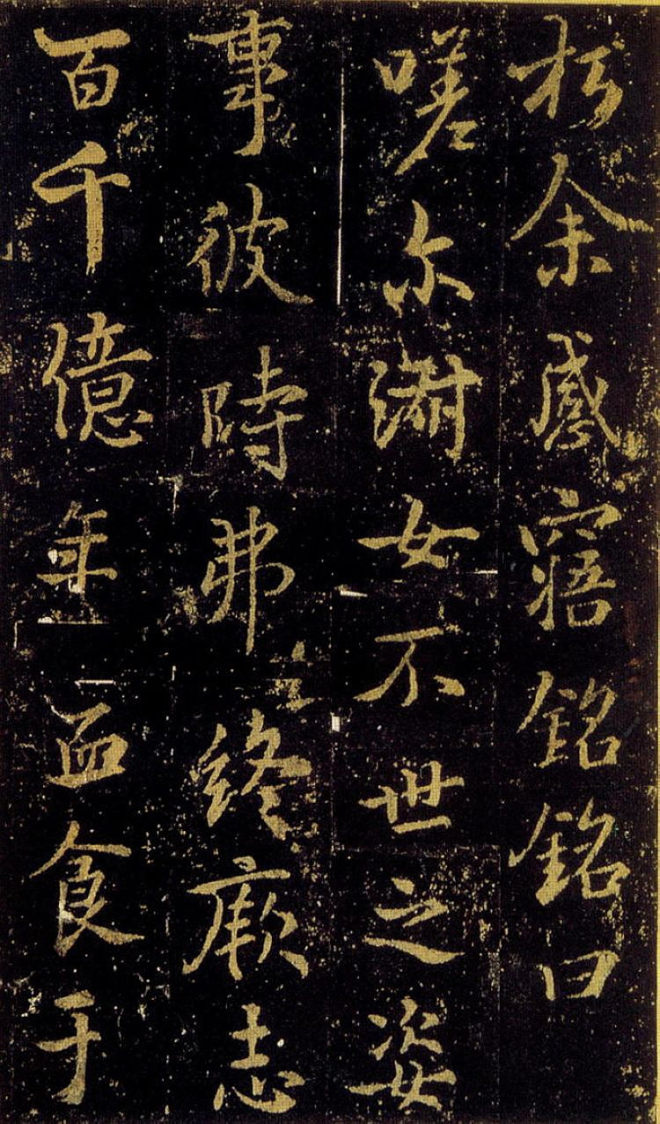 扵余感寤銘銘曰
嗟尔淑女不世之姿
事彼時弗終厥志
百千億年血食于